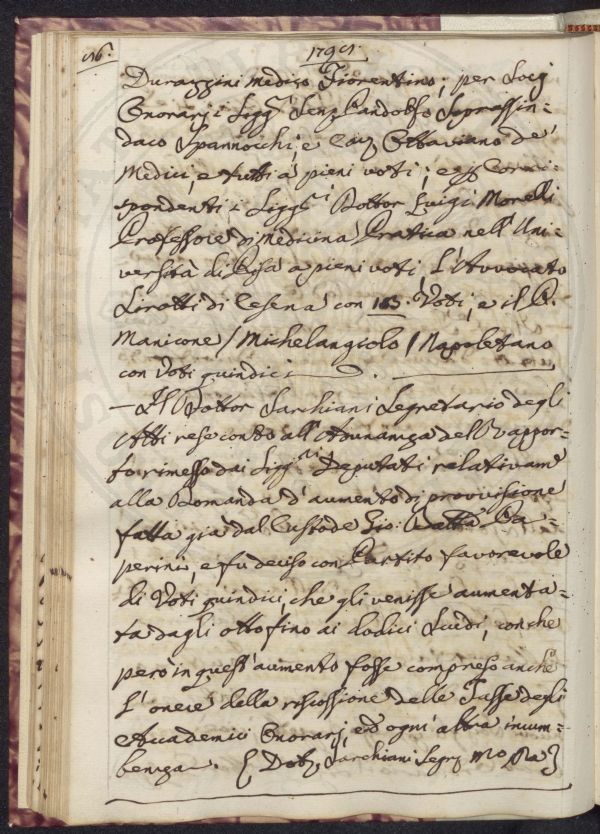 56. 1795.
Durazzini Medico Fiorentino; per Socj
Onorarj i Sigg.i Senz. Pandolfo Soprassin=
daco Spannocchi, e Cav. Ottaviano de'
Medici, e tutti a pieni voti; e p. Corri=
spondenti i Sigg.i Dottor Luigi Morelli
Professore di Medicina Pratica nell'Uni=
versità di Pisa a pieni voti L'Avvocato
di Cesena con 13. Voti, e il P.
Manicone / Michelangiolo / Napoletano
con Voti quindici.
— Il Dottor Sarchiani Segretario degli
Atti rese conto all'Adunanza dell'rappor=
to rimesso dai Sigg.ri Deputati relativam.e
alla Domanda d'aumento di provvisione
fatta già dal Custode Gio: Batta Ca=
perini, e fu deciso con Partito favorevole
di Voti quindici, che gli venisse aumenta=
ta dagli otto fino ai dodici Scudi, con che
però in quest'aumento fosse compreso anche
l'onere della riscossione delle Tasse degli
Accademici Onorarj, ed ogni altra incum=
benza. { Dott. Sarchiani Segr. }